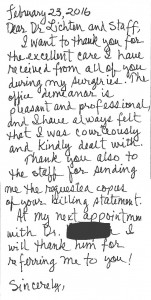 February 23, 2016
Dear Dr. Lichten and Staff,
I want to thank you for
the excellent care I have
received from all of you
during my surgeries. The
office demeanor is
pleasant and professional,
and I have always felt
that I was courteously
and kindly dealt with.
Thank you also to
the staff for sending
me the requested copies
of your billing statement.
At my next appointmen
with Dr. I
will thank him for
referring me to you!
Sincerely,